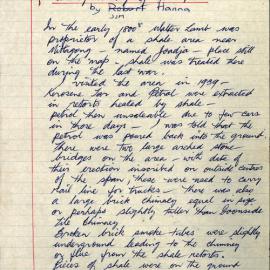 by Robert Hanna
JIM
In the early 1800s Walter Lamb was
proprietor of a shale area near
Mittagong - named Joadja - place still
on the map - shale was treated there
during the last war.
I visited the area in 1929 -
Kerosene Tar and Petrol were extracted
in retorts heated by shale -
petrol then unsaleable due to few cars
in those days - I was told that the
petrol was poured back into the ground
There were two large arched stone
bridges on the area - with date of
their erection inscribed on outside centres
of the span these were used to carry
rail line for trucks - There was also
a large brick chimney equal in size
or perhaps slightly taller than Doonside
Tile Chimney.
Broken brick smoke tubes were slightly
underground leading to the chimney
or flue from the shale retorts.
Pieces of shale were on the ground